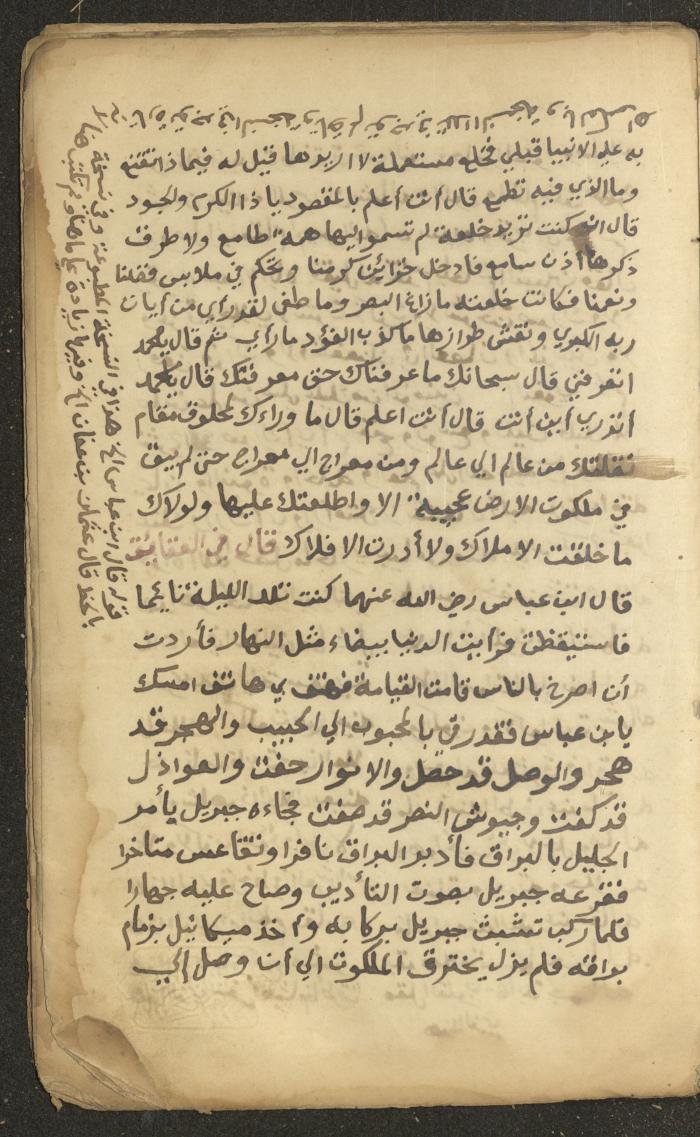 به علي الانبيا قبلي فخلع مستعملة لا اريدها قيل له فيما ذا تقنع
وما الذي فيه تطمع قال أنت أعلم بالمقصود يا ذا الكرم والجود
قال ان كنت تريد خلعة لم تسموا اليها همة طامع ولا طرقت
ذكرها أذن سامع فادخل خزائن كرمنا وتحكم في ملابس فضلنا
ونعمنا فكانت خلعته ما زاغ البصر وما طغى لقد رأي من أيات
ربه الكبري ونقش طرازها ما كذب الفؤد ما رأي ثم قال يا محمد
اتعرفني قال سبحانك ما عرفناك حق معرفتك قال يا محمد
أتدري أين أنت قال أنت اعلم قال ما وراءك لمخلوق مقام
نقلتك من عالم الي عالم ومن معراج الي معراج حتى لم يبق
في ملكوت الارض عجيبة الا واطلعتك عليها ولولاك
ما خلقت الاملاك ولا أدرت الافلاك قال في العقايق
قال ابن عباس رضي الله عنهما كنت تلك الليلة نائما
فاستيقظت فرأيت الدنيا بيضاء مثل النهار فأردت
أن اصرخ بالناس قامت القيامة فهتف بي هاتف امسك
يا بن عباس فقد رقي بالمحبوب الي الحبيب والهجر قد
هجر والوصل قد حصل والانوار حفت والعواذل
قد كفت وجيوش النصر قد صفت فجاءه جبريل يأمر
الجليل بالبراق فأدبر البراق نافرا وتقاعس متاخرا
فقرعه جبريل بصوت التأديب وصاح عليه جهارا
فلما ركب تشبث جبريل بركابه وأخذ ميكائيل بزمام
براقه فلم يزل يخترق الملكوت الي أن وصل الي
قوله قال ابن عباس الخ هذا في النسخة المطبوعة وفي نسخة
بالخط قال عثمان بن عفان الخ وفيها زيادة علي ما هنا